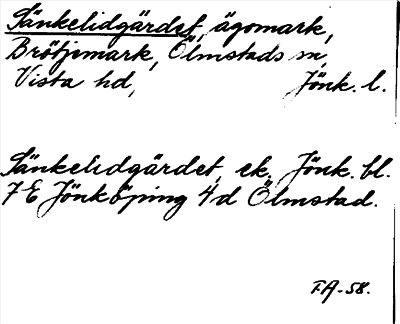 Sänkelidgärdet, ägomark,
Brötjemark, Ölmstads sn,
Vista hd, Jönk. l.
Sänkelidgärdet, ek. Jönk. bl.
7 E Jönköping 4 d Ölmstad.
FA-58.